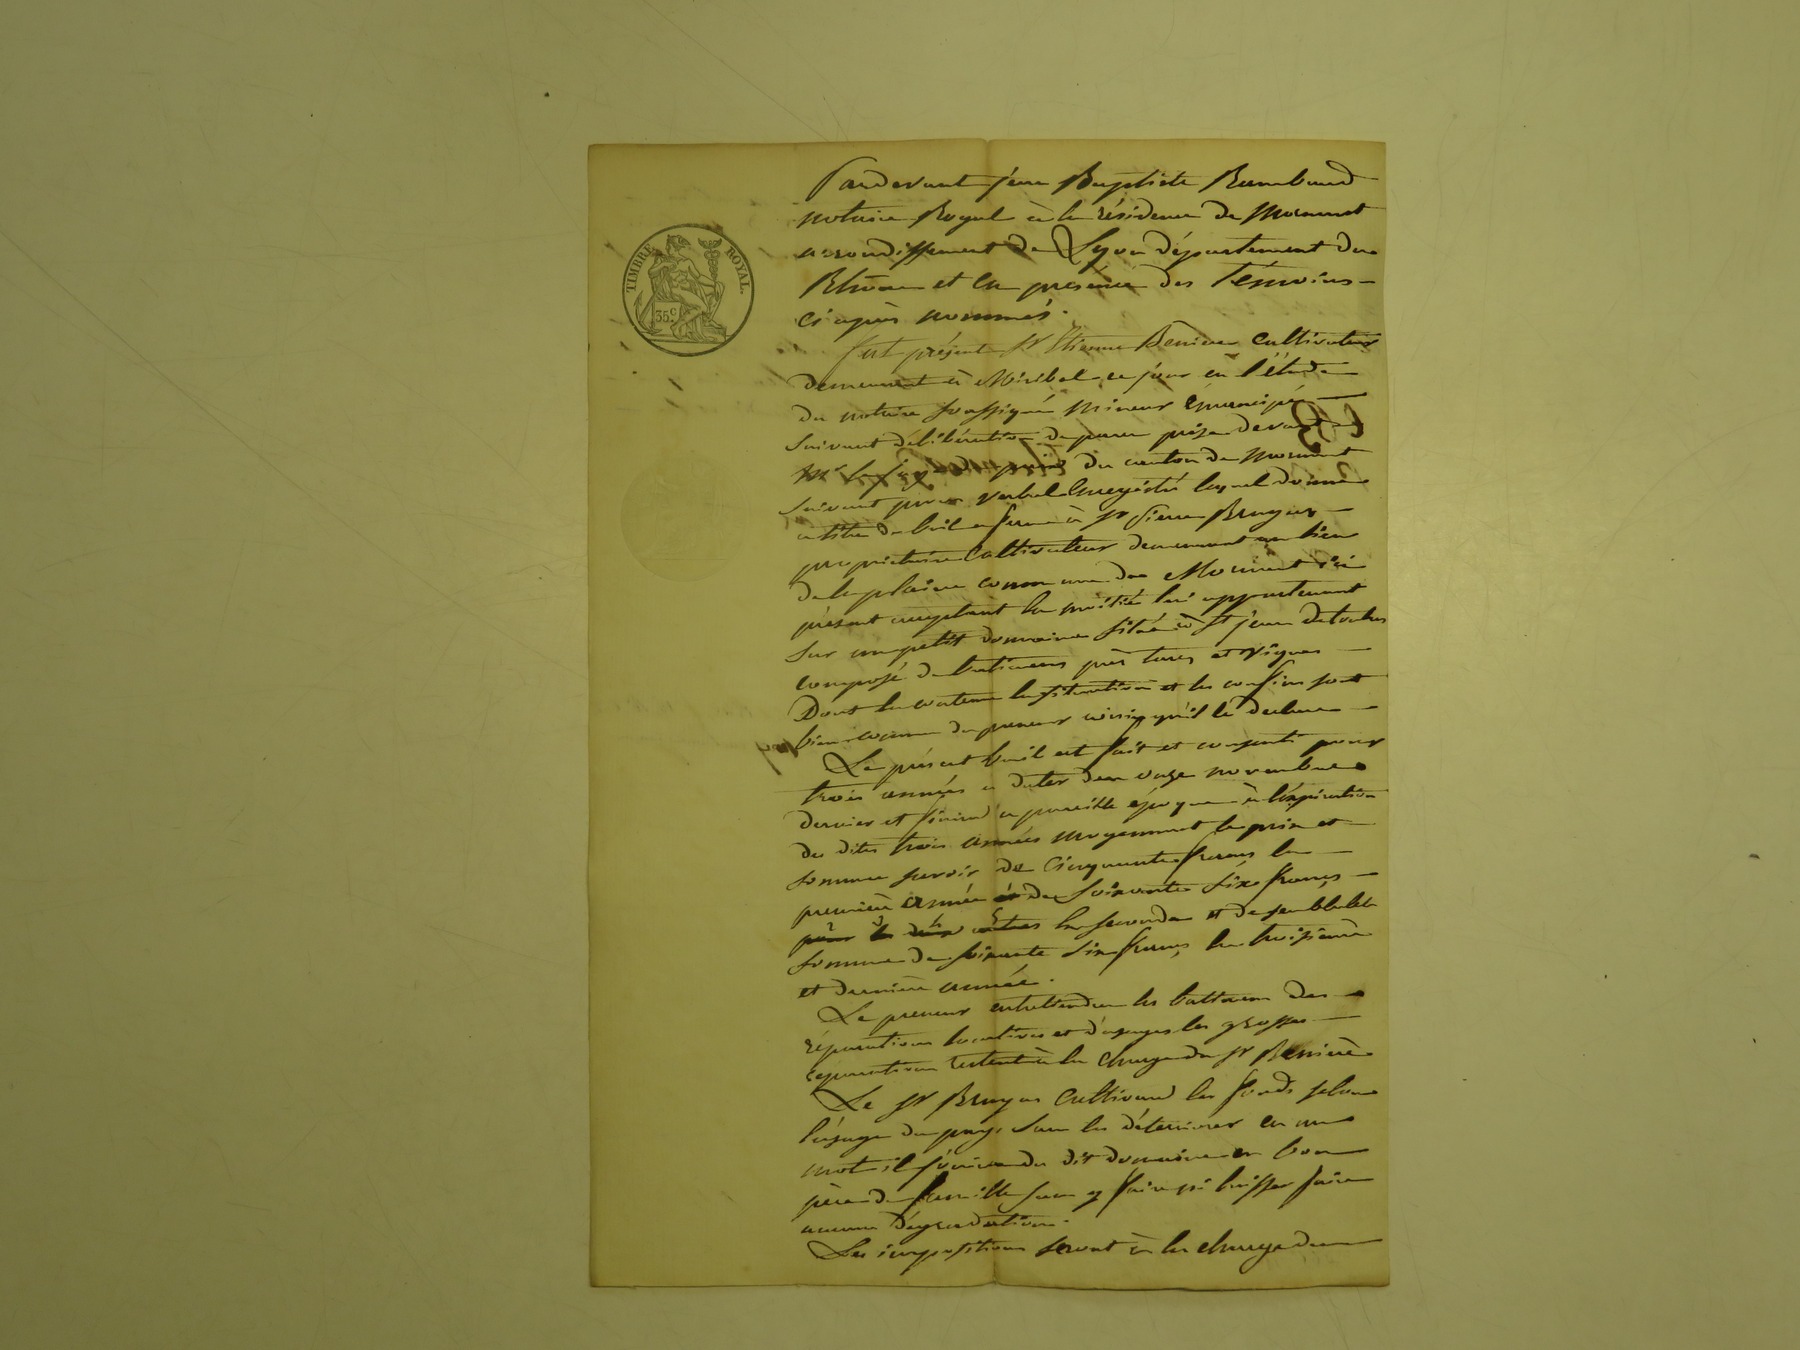 TIMBRE ROYAL.
35 c
Pardevant jean Baptiste Rambaud
notaire Royal à la résidence de Mornant
arrondissement de Lyon département du
Rhône et en présence des Témoins
ci après nommés.
fut présent Sr Etienne Benière cultivateur
demeurant à Miribel ce jour en l'étude
du notaire soussigné Mineur émancipé
suivant délibération de prise devant
Mr le juge de paix du canton de Mornant
suivant procès verbal enregistré lequel donne
à titre de bail à ferme à Sr Pierre Bruyas
propriétaire Cultivateur demeurant au lieu
de la plaine commune de Mornant ici
présent acceptant la moitié lui appartenant
sur un petit domaine situé à St jean de toulas
composé de batimens près terres et vignes
Dont la contenue la situation et les confins sont
bien connu du preneur ainsi qu'il le declare
Le présent bail est fait et consenti pour
trois années a dater du onze novembre
dernier et finira a pareille époque à l'expiration
des dites trois années moyennant le prix et
somme savoir de cinquante francs la
première année et de soixante six francs
la seconde et de semblable
somme de soixante six francs, la troisième
et dernière année.
Le preneur entretiendra les batimens des
réparations locatives et d'usages les grosses
reparations restent à la charge du Sr Benière
Le Sr Bruyas cultivera les fonds selon
l'usage du pays sans les détériorer en un
mot il jouira du dit domaine en bon
père de famille sans y faire ni laisser faire
aucune dégradation.
Les impositions seront à la charge du